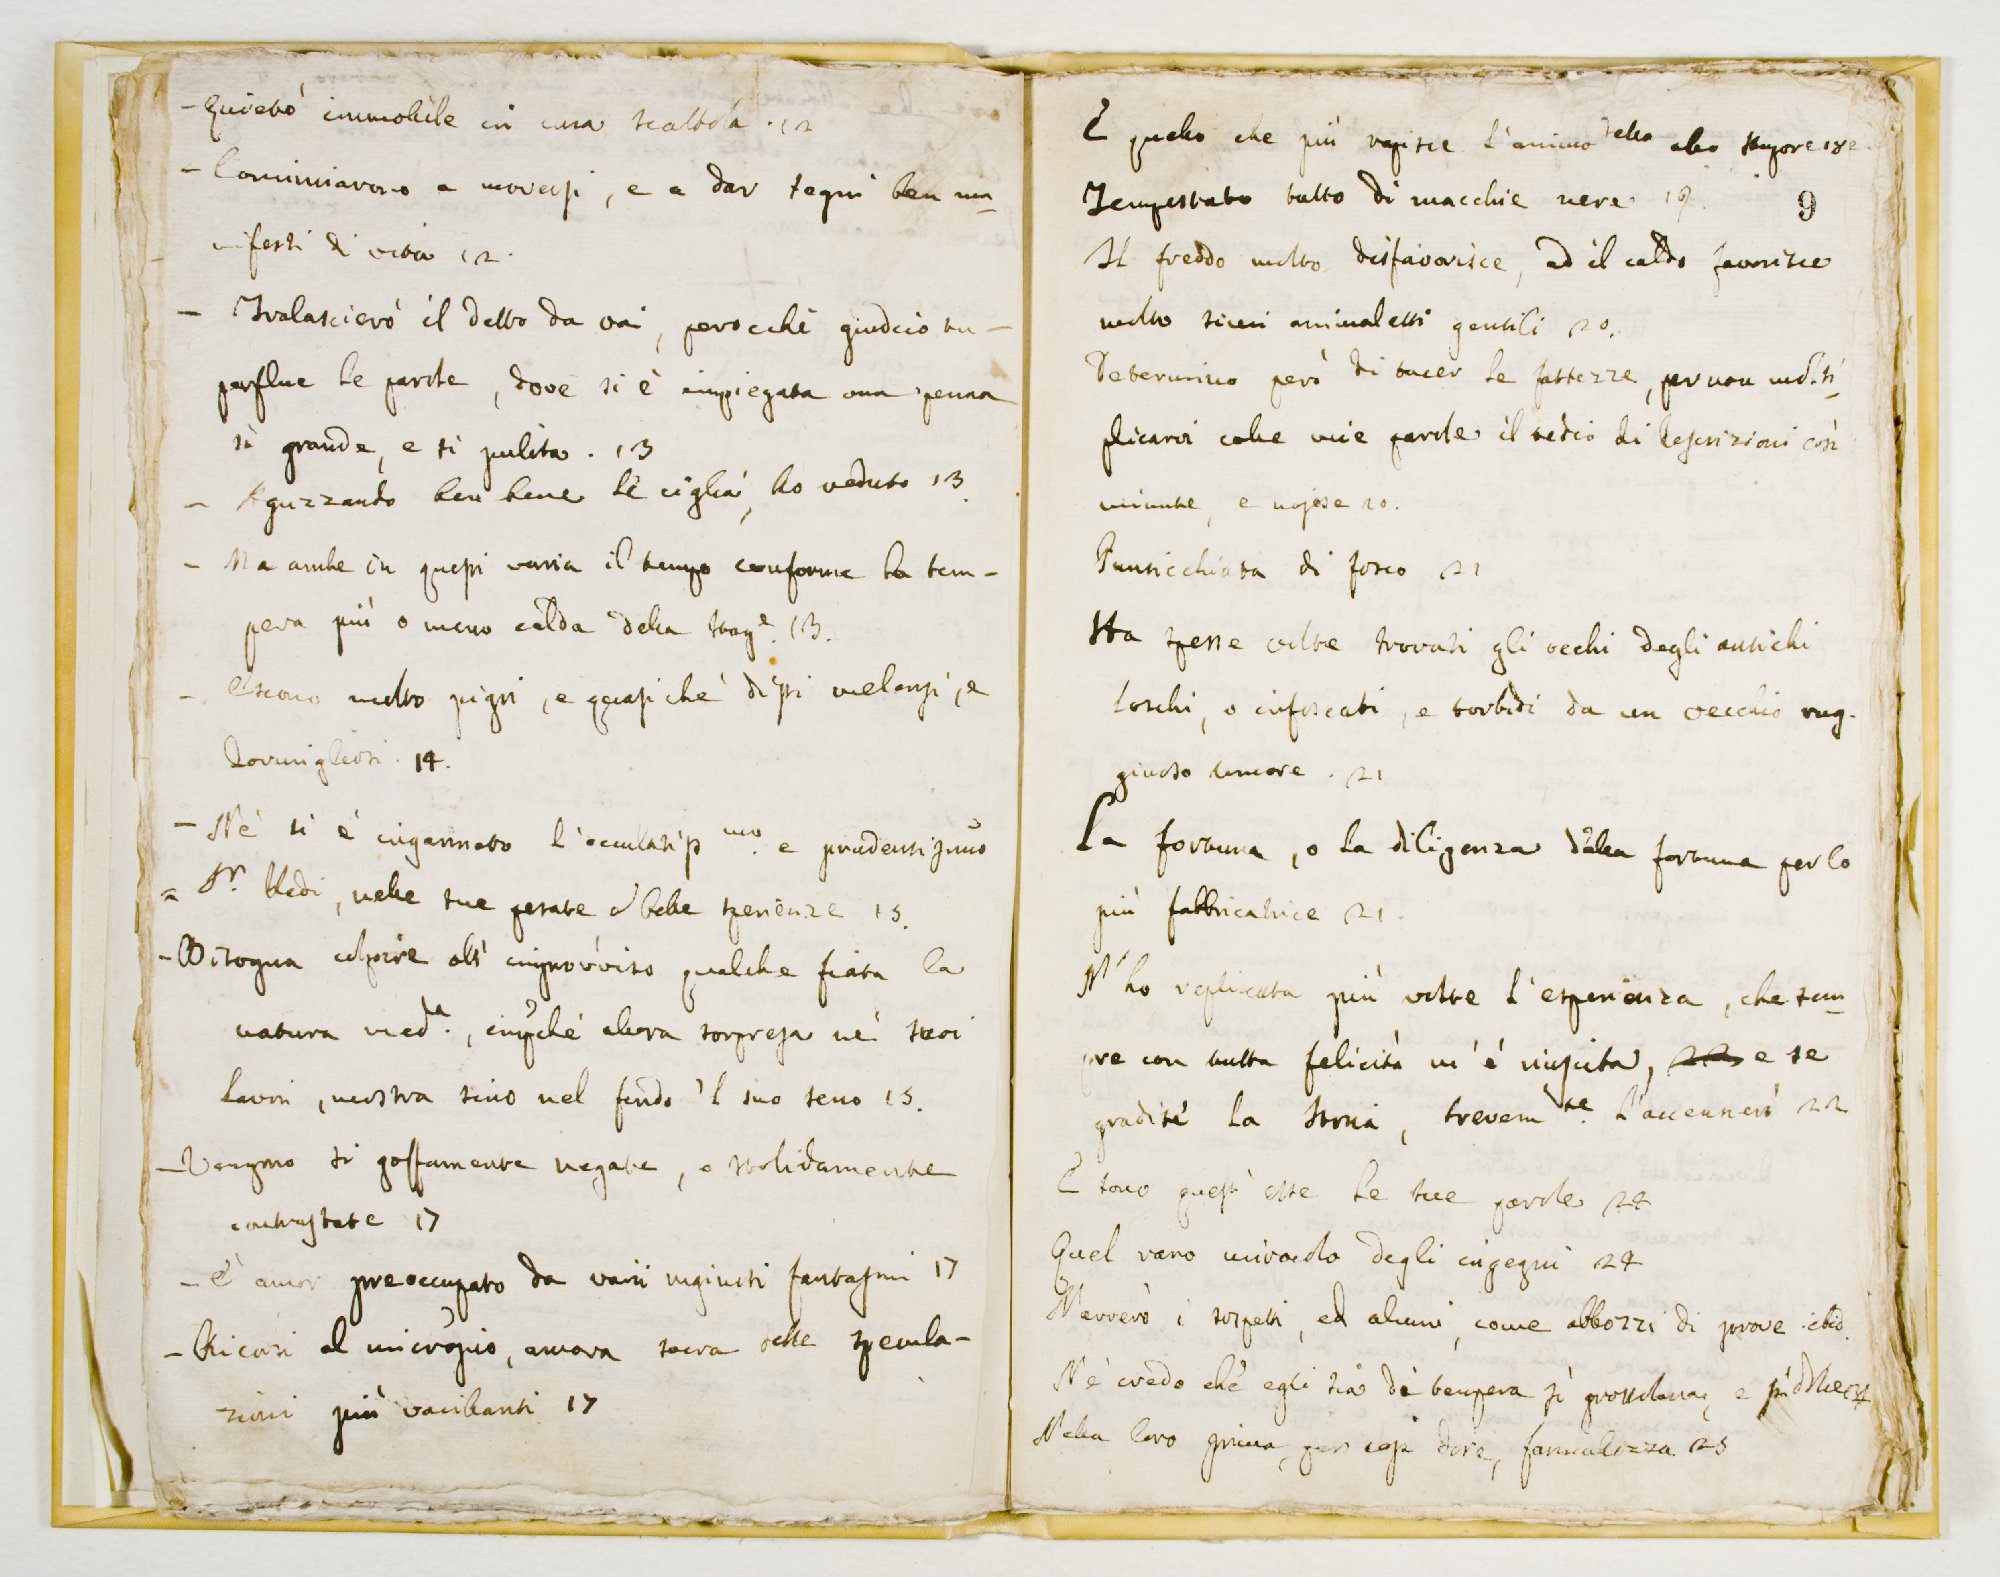 - Quietò immobile in una scattola . 12
- Cominciavono a moversi, e a dar segni ben ma=
nifesti di vita 12.
- Tralascierò il detto da voi, perocchè giudcio su-
perflue le parole, dove si è impiegata una penna
sì grande, e sì pulita . 13
- Aguzzando ben bene le ciglia, ho veduto 13.
- Ma anche in questi varia il tempo conforme la tem-
pera più o meno calda della stag.e 13.
- Escono molto pigri, e quasi chè dissi melensi, e
dormigliosi . 14.
- Nè si è ingannato l'oculatiss.mo e prudentissimo
= Sr. Redi, nelle sue pesate e belle sperienze 15.
- Bisogna colpire all'improvviso qualche fiata la
natura med.a, impchè allora sorpresa ne' suoi
lavori, mostra sino nel fondo 'l suo seno 15.
- Vengono sì goffamente negate, o stolidamente
contrastate 17
- È amor preoccupato da varii ingiusti fantasmi 17
- Ricorsi al microspio, ancora sacra delle specula-
zioni più vacillanti 17
È quello che più rapisce l'animo allo stupore 18
Tempestato tutto di macchie nere 19.
9
Il freddo molto disfavorisce, ed il caldo favorisce
molto simi animaletti gentili 20.
Determino però di tacer le fattezze, per non molti=
plicarvi colle mie parole il tedio di descrizioni così
minute, e nojose 20.
Punticchiata di fosco 21
Ha spesse volte trovati gli occhi degli antichi
loschi, o infoscati, e torbidi da un vecchio rug-
ginoso umore . 21
La fortuna, o la diligenza della fortuna per lo
più fabbricatrice 21.
N'ho replicata più volte l'esperienza, che sem=
pre con tutta felicità m'è riuscita, e se
gradite la Storia, brevem.te l'accennerò 22
E sono queste esse le sue parole 24
Quel raro miracolo degli ingegni 24
Narrerò i sospetti, ed alcuni, come abbozzi di prove
Nè credo che egli sia di tempera sì grossolana, e
Nella loro prima, per così dire, fanciullezza 25